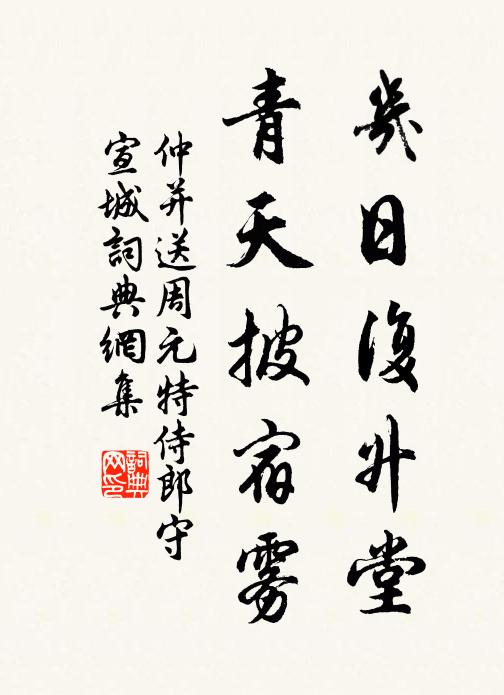 幾日復升堂
青天披宿霧
仲并送周元特侍郎守
宣城詞典網集
詞典网印